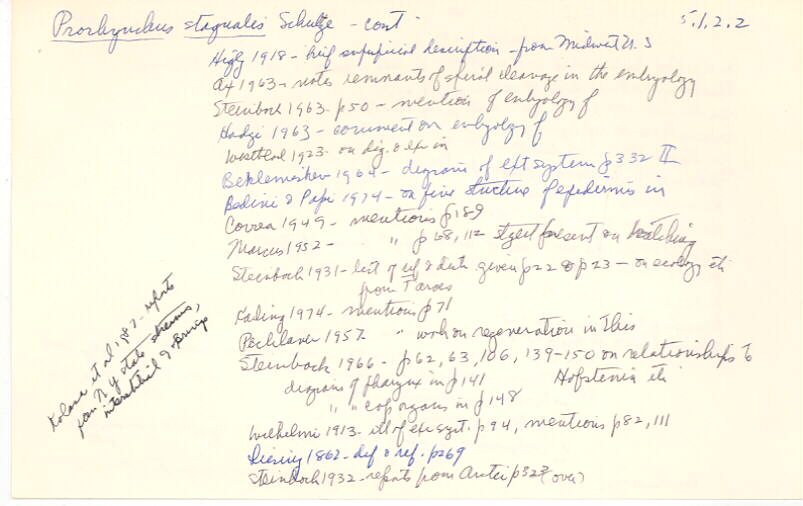 Prorhynchus stagnalis Schultze - cont
5.1.2.2
Higly 1918 - brief superficial description - from Midwest U.S
Ax 1963 - notes remnants of spiral cleavage in the embryology
Steinbock 1963 - p50 - mention of embryology of
Hadzi 1963 - comment on embryology of
Westblad 1923 - on dig. & ex in
Beklemischev 1964 - diagrams of ext system p332 II
Bedini & Papi 1974 - on fine structure of epidermis in
Correa 1949 - mentions p189
Marcus 1952 - " p68, 112 stylet present on hatching
Steinbock 1931 - list of ref & distr given p22 & p23 - on ecology etc
from Faroes
1974 - mentions p71
Pechlaner 1957 " work on regeneration in this
Steinbock 1966 - p62, 63, 106, 139-150 on relationships to
diagrams of pharynx in p141 Hofstenia etc
" " cop organs in p148
Wilhelmi 1913 - ill of exc syst. p94, mentions p82, 111
Diesing 1862 - def & ref. p269
Steinbock 1932 - reports from p323 (over)
Kolasa et al 1987 - reports
from N.Y. state streams,
interstitial & springs